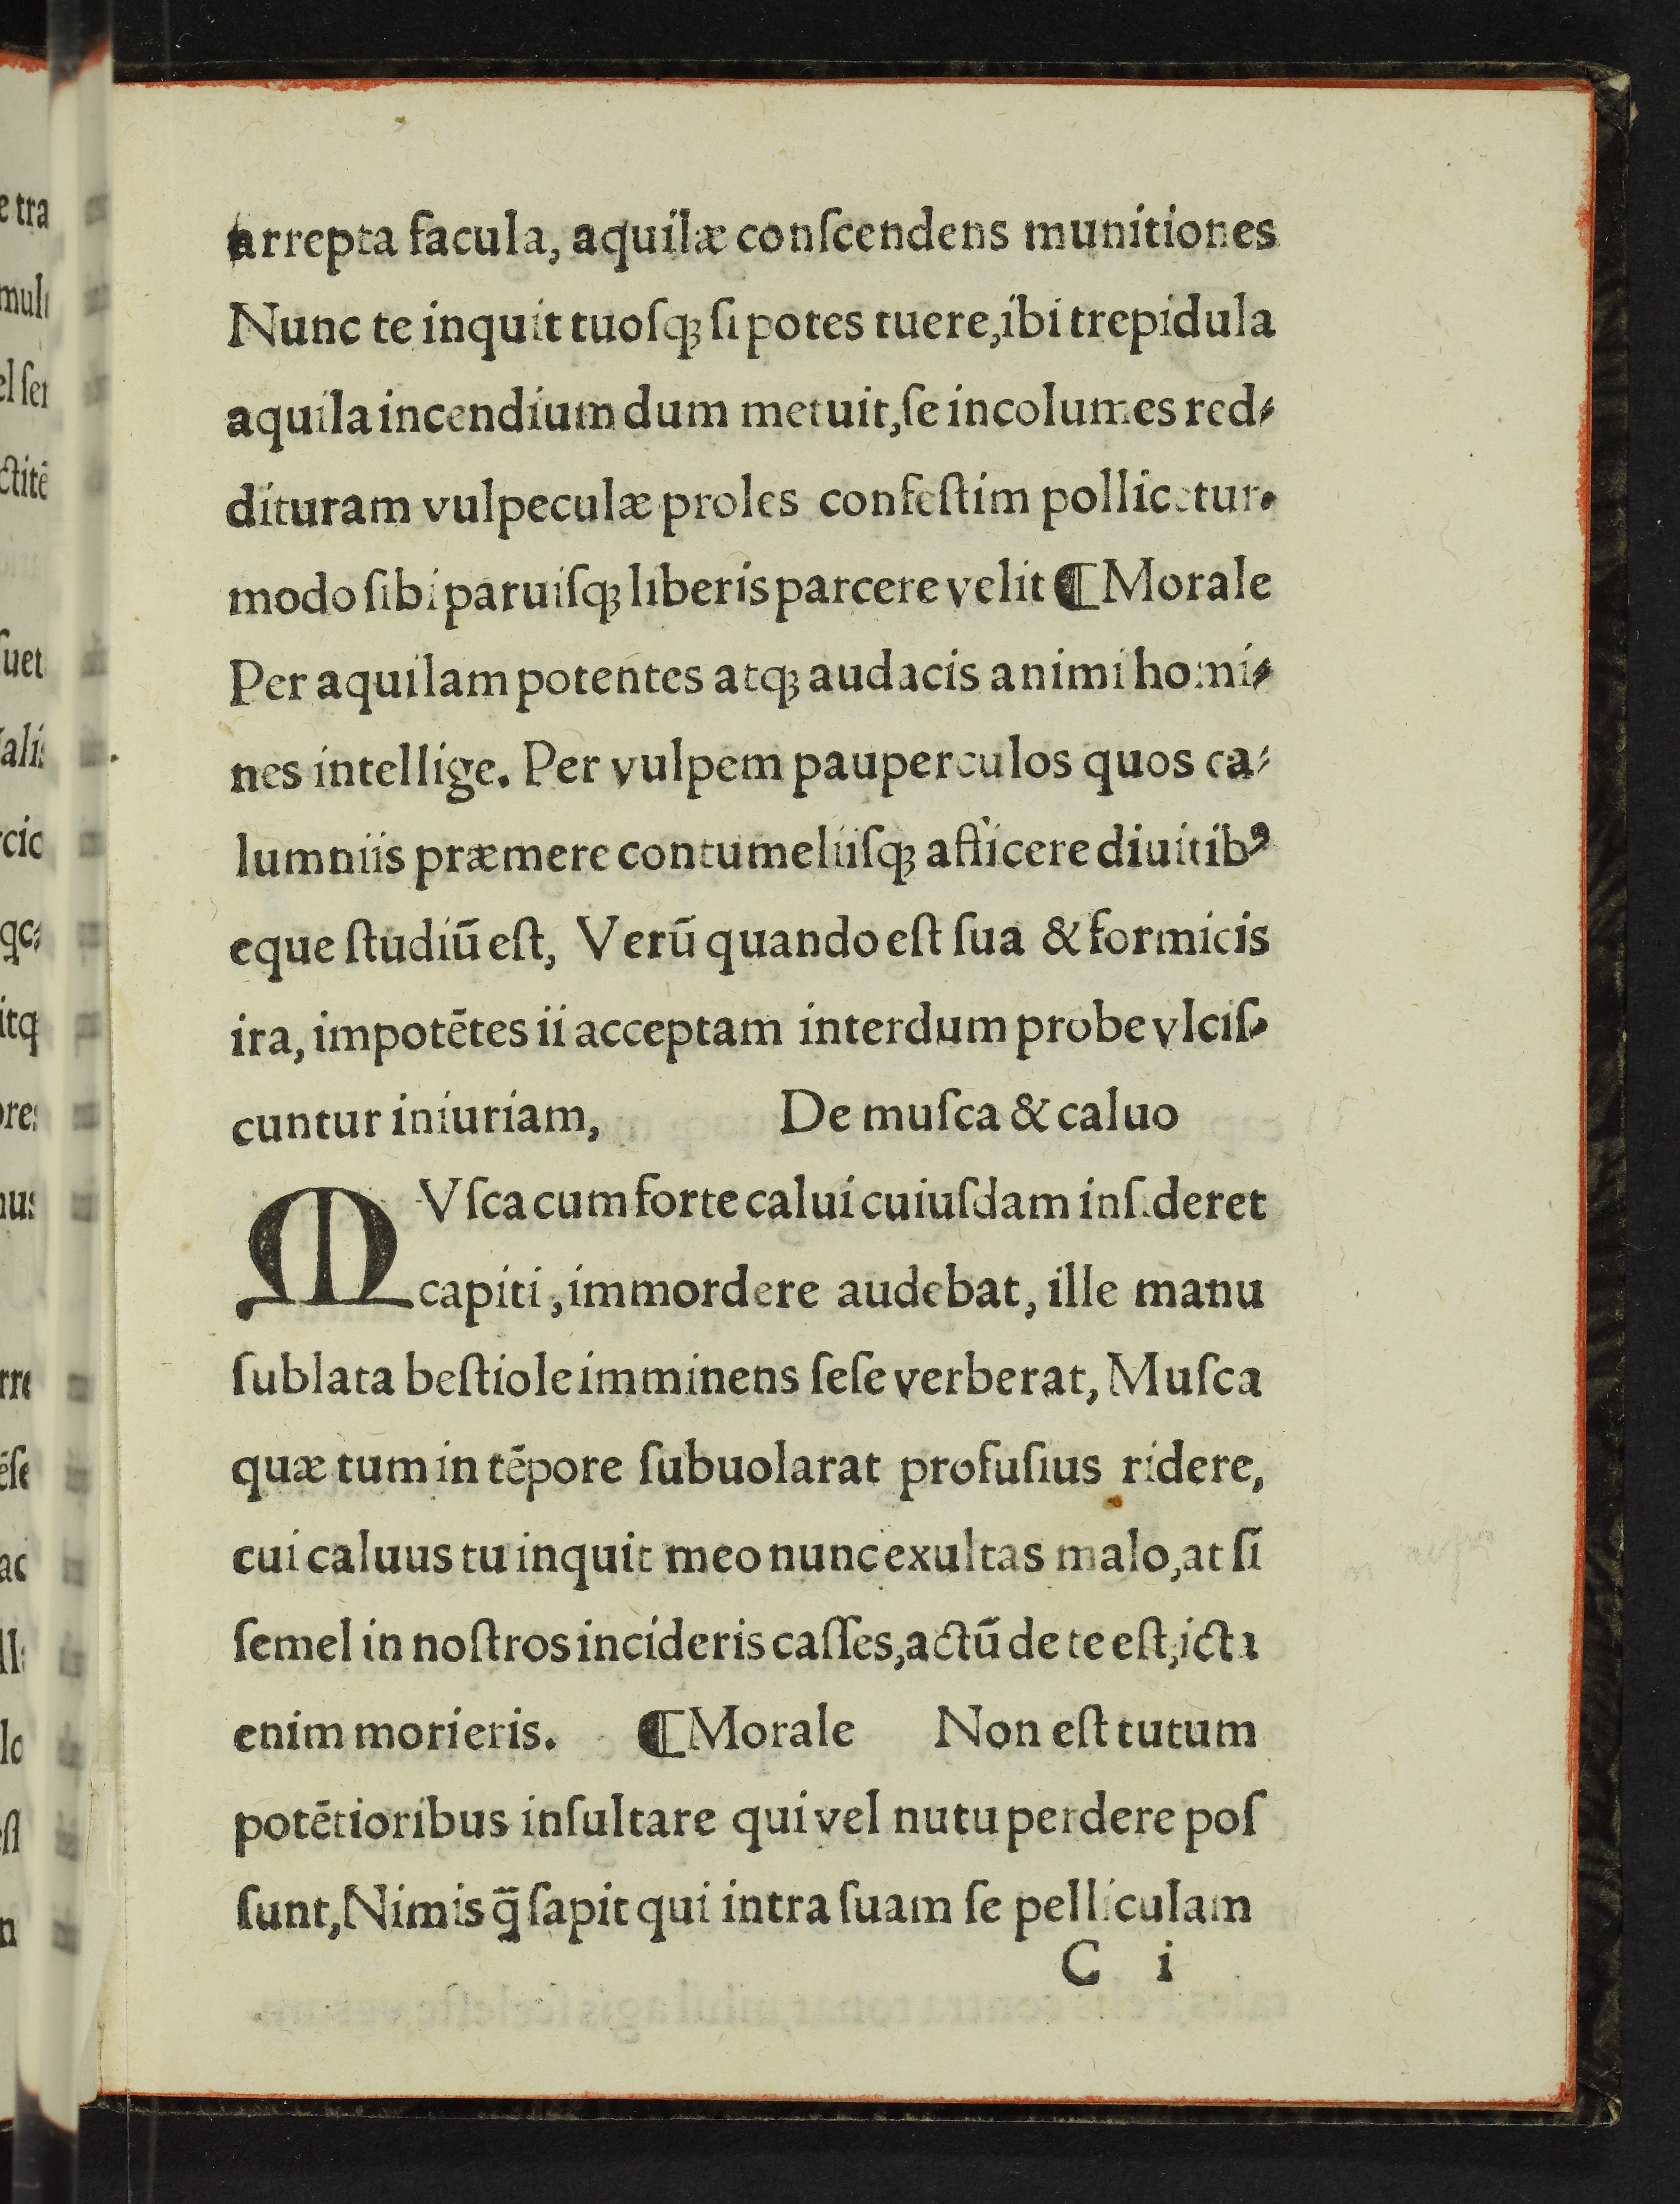 arrepta facula, aquilæ conſcendens munitiones
Nunc te inquit tuoſqꝫ ſi potes tuere, ibi trepidula
aquila incendium dum metuit, ſe incolumes red⸗
dituram vulpeculæ proles confeſtim pollicetur.
modo ſibi paruiſqꝫ liberis parcere velit ¶ Morale
Per aquilam potentes atqꝫ audacis animi homi⸗
nes intellige. Per vulpem pauperculos quos ca⸗
lumniis præmere contumeliiſqꝫ afficere diuitibꝰ
eque ſtudiū eſt, Verū quando eſt ſua & formicis
ira, impotētes ii acceptam interdum probe vlciſ⸗
cuntur iniuriam, De muſca & caluo
MVſca cum forte calui cuiuſdam inſideret
capiti, immordere audebat, ille manu
ſublata beſtiole imminens ſeſe verberat, Muſca
quæ tum in tēpore ſubuolarat profuſius ridere,
cui caluus tu inquit meo nunc exultas malo, at ſi
ſemel in noſtros incideris caſſes, actū de te eſt, icta
enim morieris. ¶ Morale Non eſt tutum
potētioribus inſultare qui vel nutu perdere poſ
ſunt, Nimis q̄ ſapit qui intra ſuam ſe pelliculam
C i